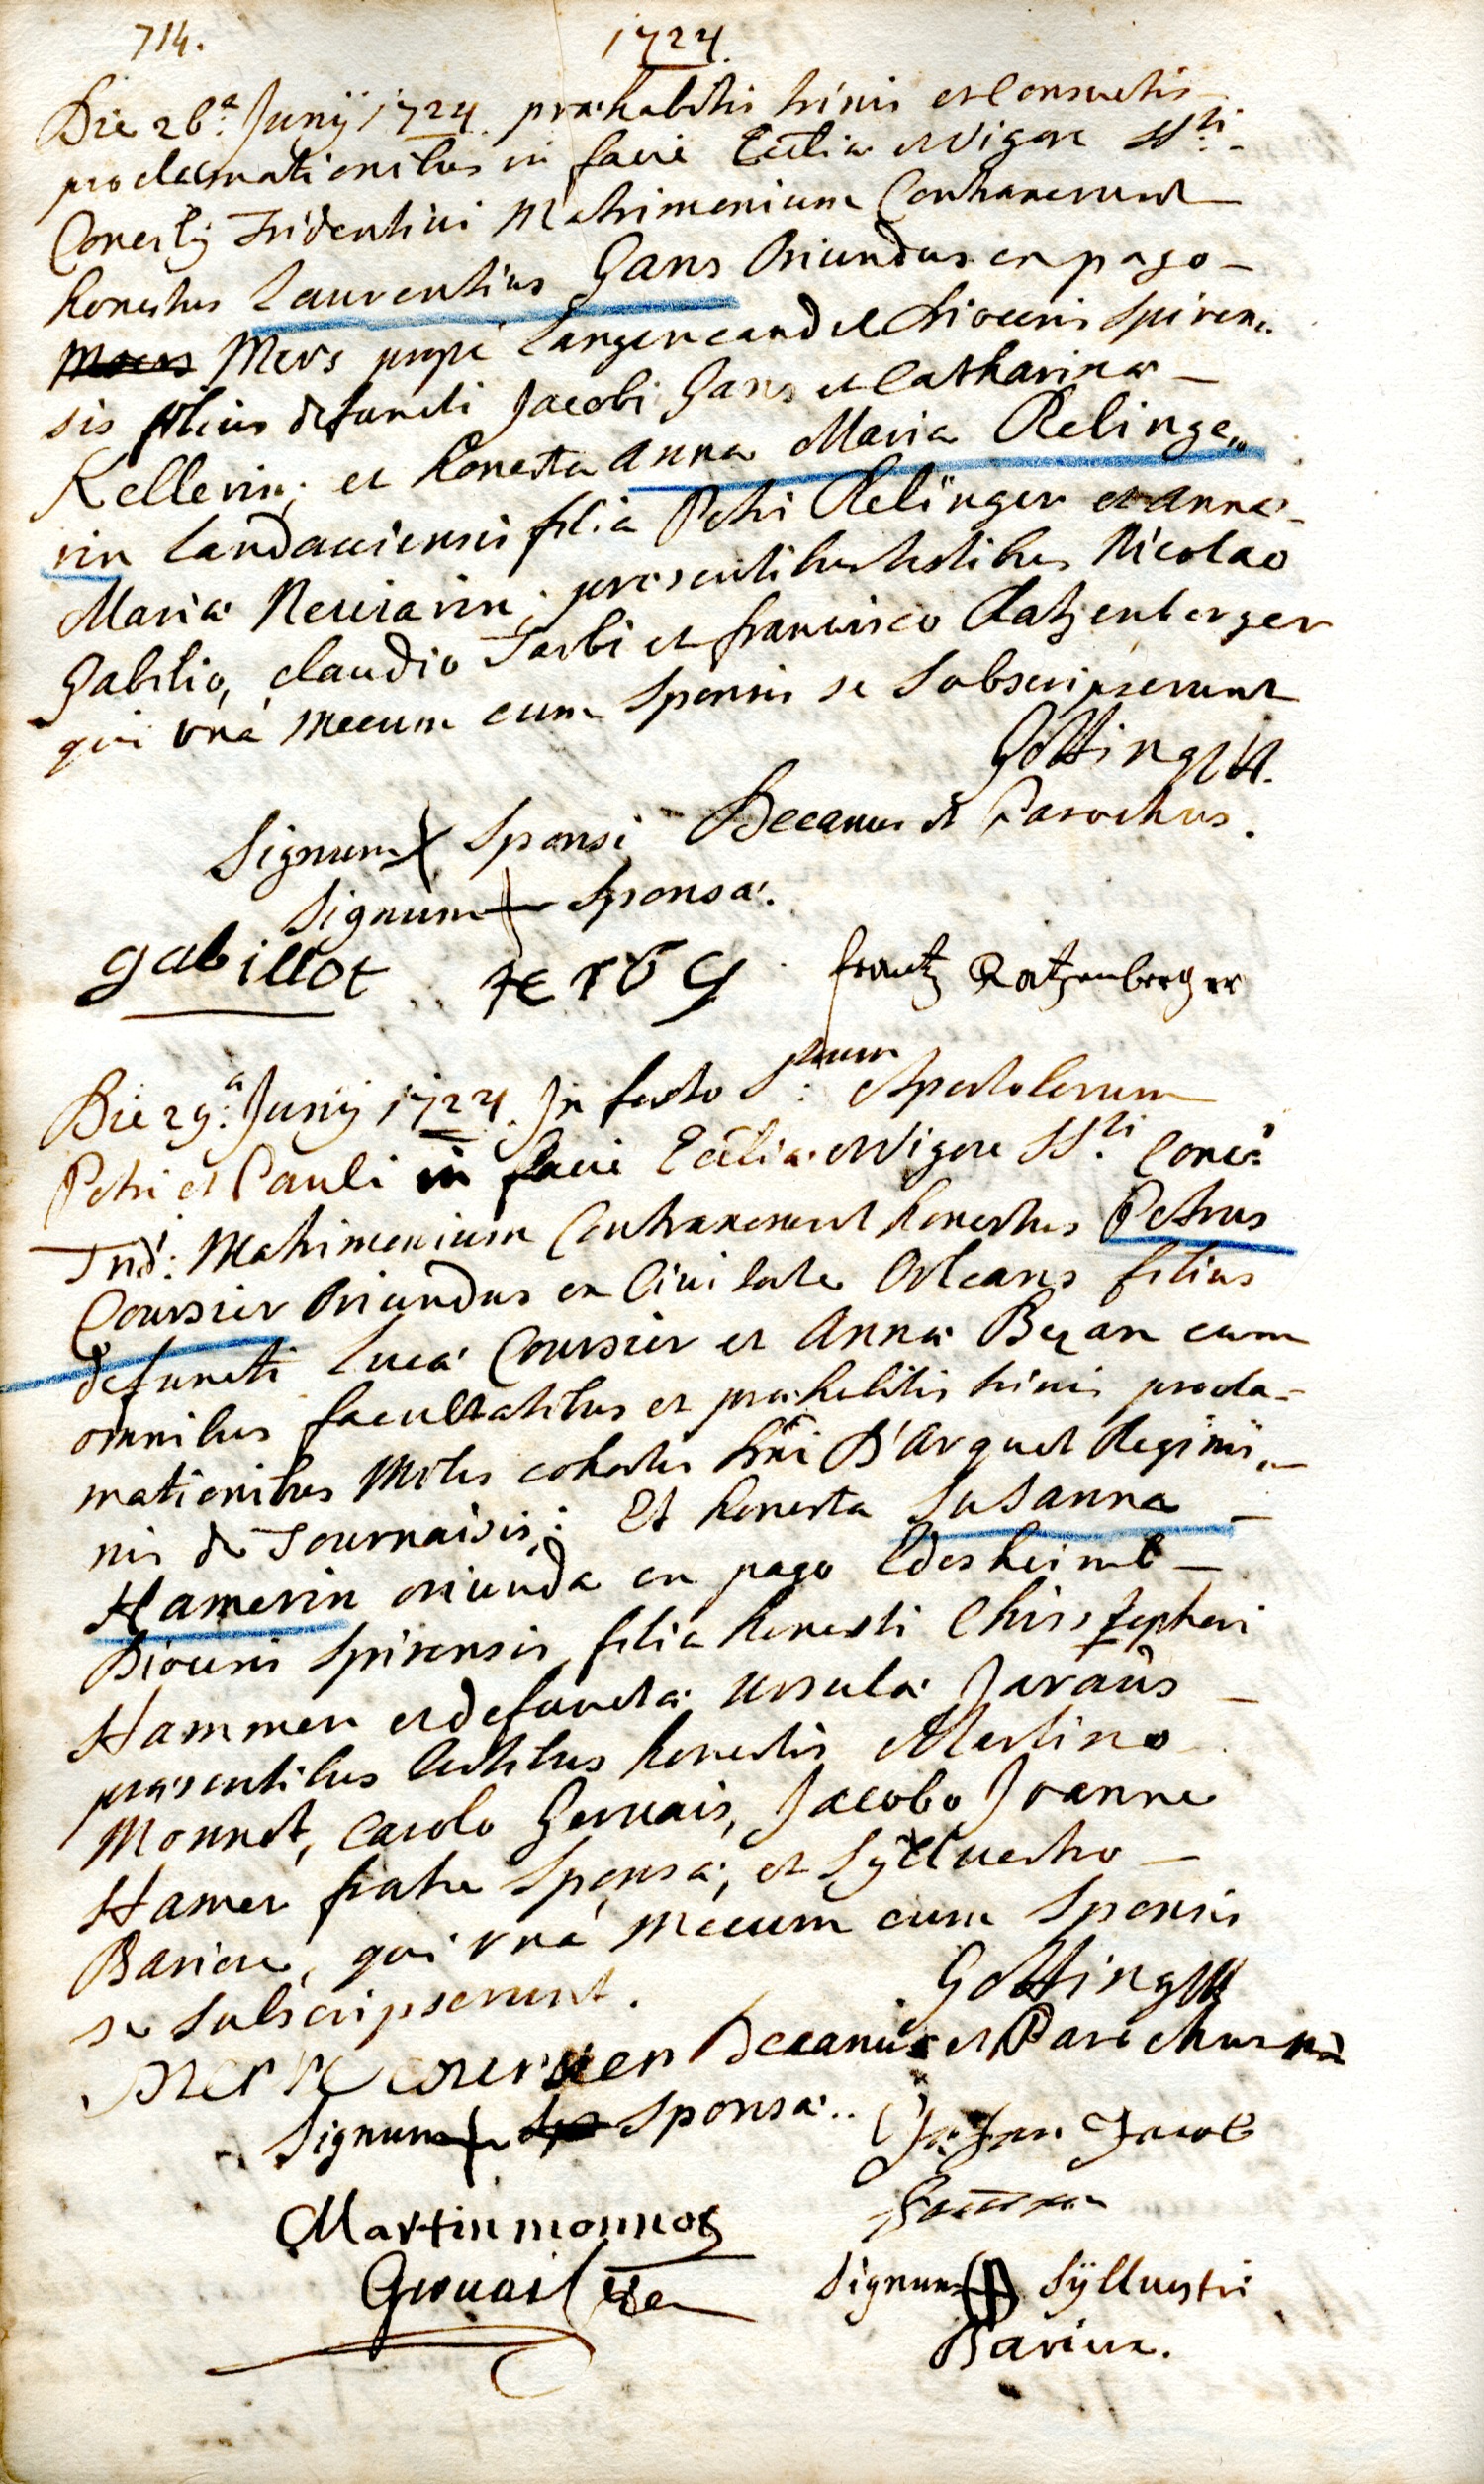 714.
1724.
Die 26.a Junij 1724. præhabitis trinis et Consuetis
proclamationibus in facie Eccliæ et Vigore SSti.
Concilij Tridentini Matrimonium Contraxerunt
honestus Laurentius Gans Oriundus ex pago
Mers prope Langencandel Diœcesis Spiren
sis filius defuncti Jacobi Gans et Catharinæ
Kellerin; et honesta Anna Maria Relinge„
rin Landaviensis filia Petri Relinger et Annæ
Mariæ ; præsentibus testibus Nicolao
Gabilio, Claudio et Francisco Ratzenberger
qui unà mecum cum Sponsis se Subscripserunt
Gotting
Signum + Sponsi Decanus et Parochus.
Signum + Sponsæ.
gabillot frantz Ratzenberger
Die 29.a Junij 1724. In festo S. Apostolorum
Petri et Pauli in facie Eccliæ et Vigore SSti. Conc:
Trid: Matrimonium Contraxerunt honestus Petrus
Coursier Oriundus ex Civitate Orleans filius
defuncti Lucæ Coursier et Annæ cum
omnibus facultatibus et præhabitis trinis procla-
mationibus Miles cohortis Dni D'Arquet Regimi„
nis de Tournaisis; Et honesta Susanna
Hamerin oriunda ex pago Edesheimb
Diœcesis Spirensis, filia honesti Christophori
Hammer et defunctæ Ursulæ
præsentibus testibus honestis Martino
Monnot, Carolo Gervais, Jacobo Joanne
Hamer fratre Sponsæ, et Syllvestro
Bariere, qui unà mecum cum Sponsis
se Subscripserunt.
Gotting
Decanus et Parochus
Signum + Sponsæ.
Johan Jacob
Martin monnot
Gervais
Signum Syllvestri
Bariere.